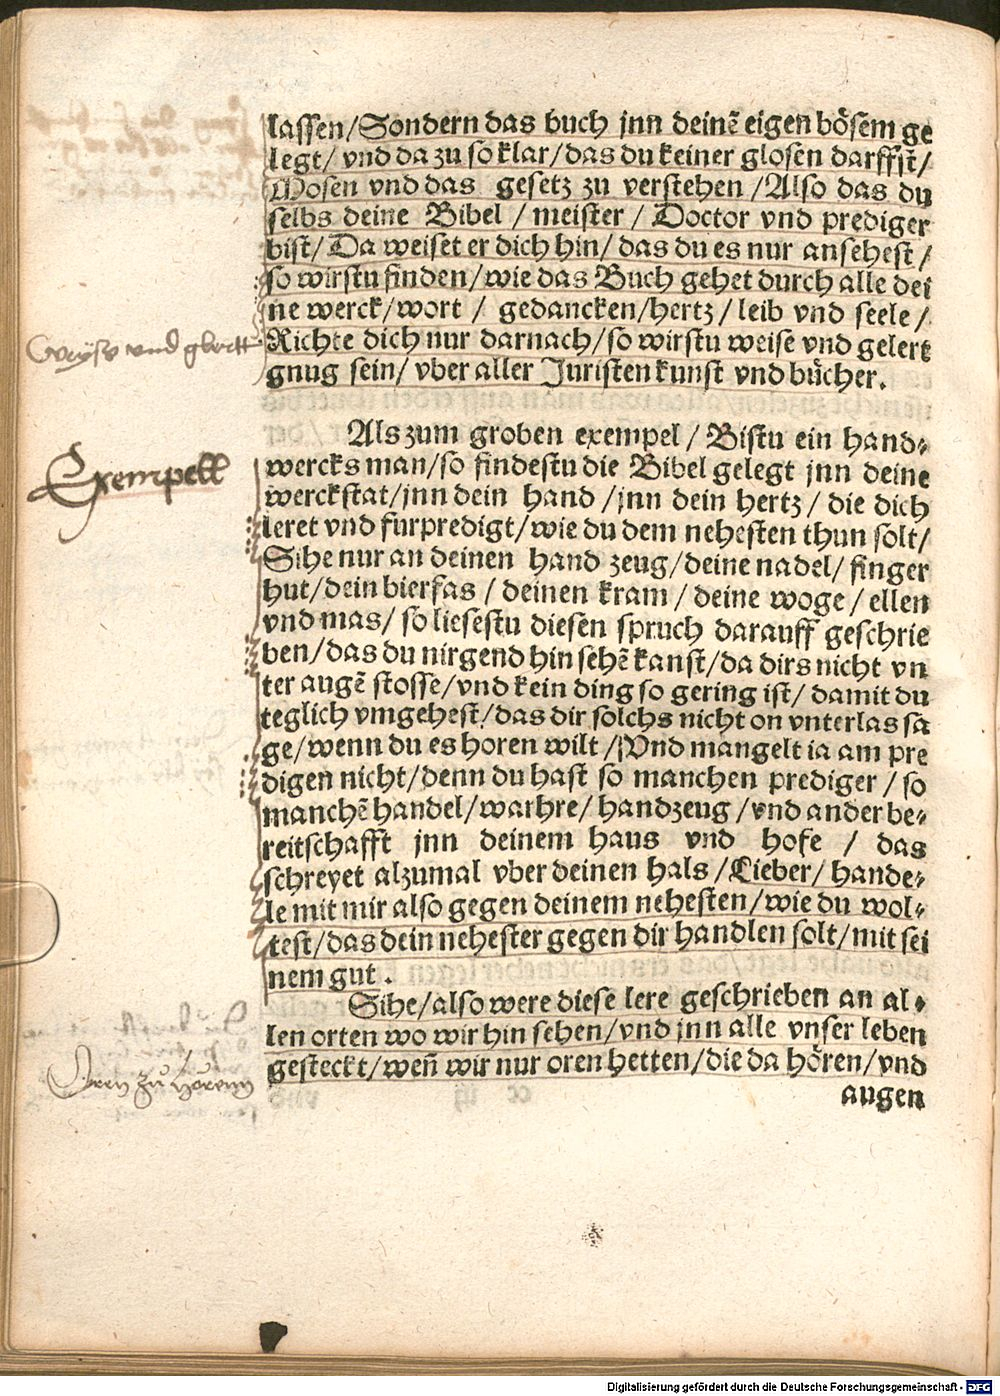 lassen/Sondern das buch jnn deinē eigen bösem ge
legt/ vnd da zu so klar/das du keiner glosen darffst/
Mosen vnd das gesetz zu verstehen /Also das du
selbs deine Bibel / meister / Doctor vnd prediger
bist/ Da weiset er dich hin/ das du es nur ansehest /
so wirstu finden/wie das Buch gehet durch alle dei
ne werck/wort / gedancken/hertz / leib vnd seele /
Richte dich nur darnach/so wirstu weise vnd gelert
gnug sein/ vber aller Juristen kunst vnd bücher.
Weyse vnd glertt
Als zum groben exempel / Bistu ein hand⸗
wercks man/so findestu die Bibel gelegt jnn deine
werckstat/jnn dein hand /jnn dein hertz / die dich
leret vnd furpredigt/wie du dem nehesten thun solt/
Sihe nur an deinen hand zeug/deine nadel/ finger
hut/dein bierfas / deinen kram / deine woge / ellen
vnd mas/ so liesestu diesen spruch darauff geschrie
ben/das du nirgend hin sehē kanst/da dirs nicht vn
ter augē stosse/vnd kein ding so gering ist/ damit du
teglich vmgehest/das dir solchs nicht on vnterlas sa
ge/wenn du es horen wilt /Vnd mangelt ia am pre
digen nicht/denn du hast so manchen prediger / so
manchē handel/warhre/ handzeug /vnd ander be⸗
reitschafft jnn deinem haus vnd hofe / das
schreyet alzumal vber deinen hals /Lieber/ hande⸗
le mit mir also gegen deinem nehesten/wie du wol⸗
test/das dein nehester gegen dir handlen solt/mit sei
nem gut .
Exempell
Sihe/also were diese lere geschrieben an al⸗
len orten wo wir hin sehen/vnd jnn alle vnser leben
gesteckt/weñ wir nur oren hetten/die da hören/vnd
augen
Oren zu horenn
Digitalisierung gefördert durch die Deutsche Forschungsgemeinschaft - DFG